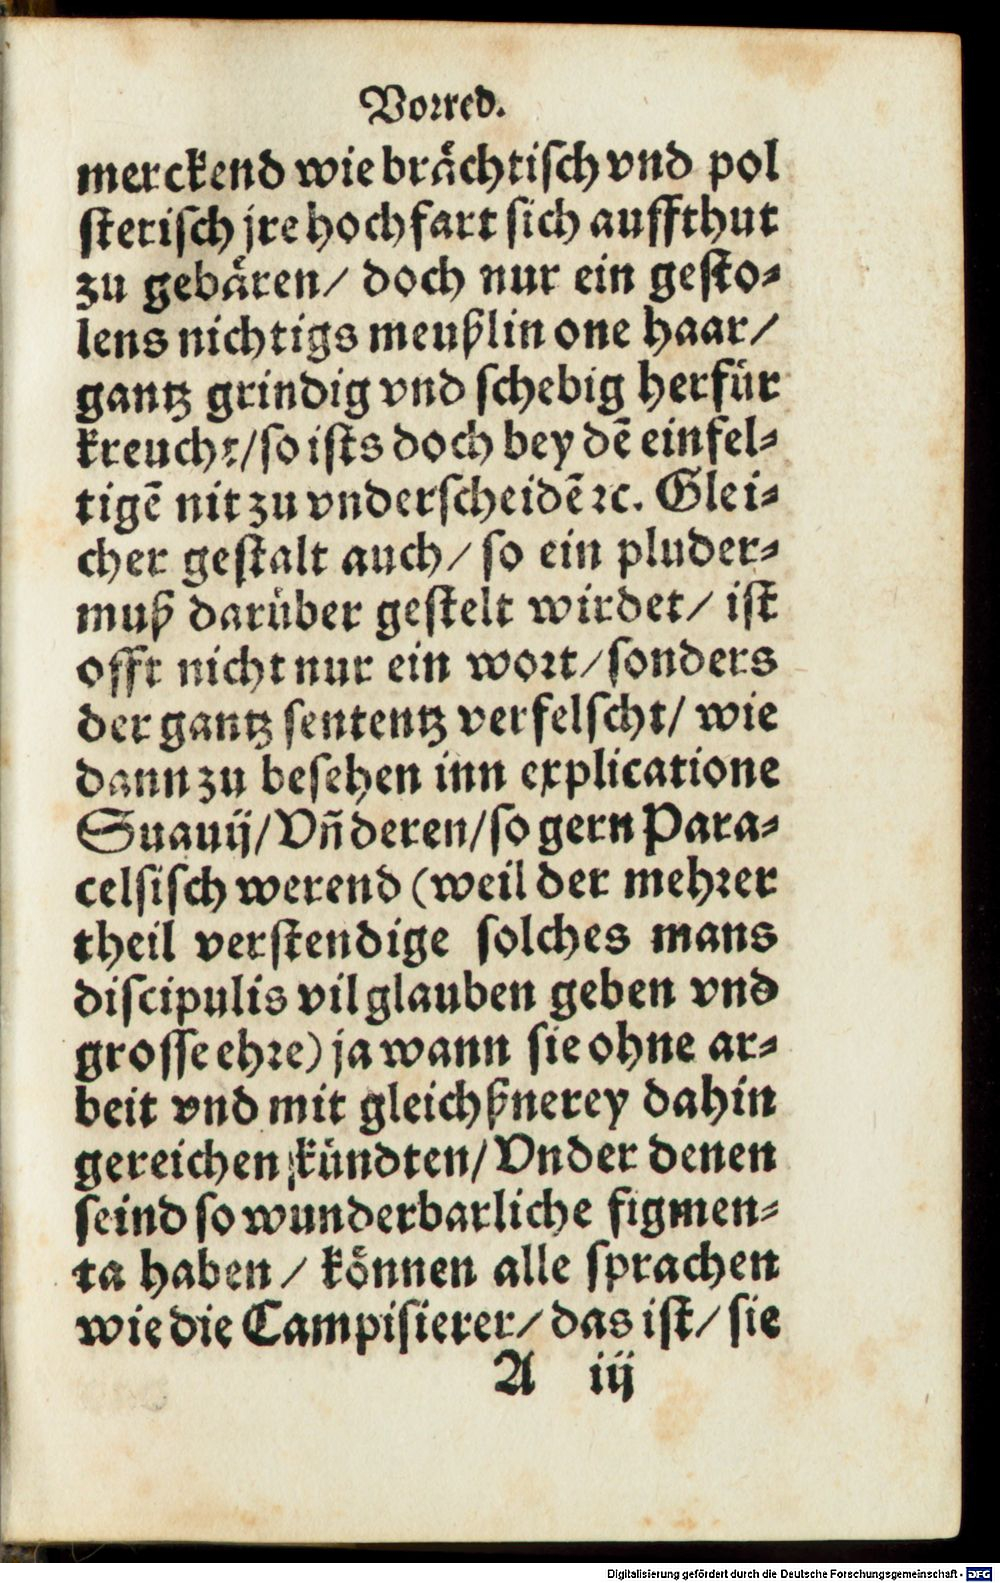 Vorred.
merckend wie brächtisch vnd pol
sterisch jre hochfart sich auffthut
zu gebären/ doch nur ein gesto-
lens nichtigs meußlin one haar/
gantz grindig vnd schebig herfür
kreucht/so ists doch bey dẽ einfel-
tigẽ nit zu vnderscheidẽ ꝛc. Glei-
cher gestalt auch/ so ein pluder-
muß darüber gestelt wirdet/ ist
offt nicht nur ein wort/sonders
der gantz sententz verfelscht/ wie
dann zu besehen inn explicatione
Suauij/Vñ deren/so gern Para-
celsisch werend (weil der mehrer
theil verstendige solches mans
discipulis vil glauben geben vnd
grosse ehre) ja wann sie ohne ar-
beit vnd mit gleichßnerey dahin
gereichen kündten/Vnder denen
seind so wunderbarliche figmen-
ta haben/ können alle sprachen
wie die Campisierer/das ist/ sie
A iij
Digitalisierung gefördert durch die Deutsche Forschungsgemeinschaft - DFG